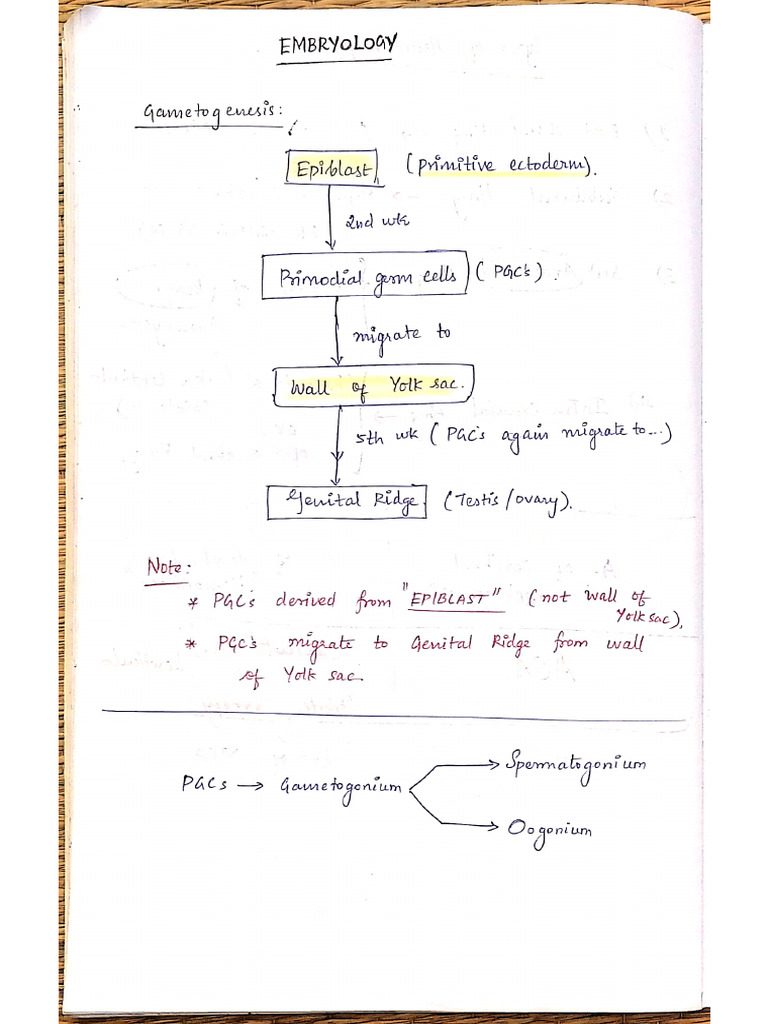 EMBRYOLOGY
Gametogenesis:
Epiblast (primitive ectoderm).
2nd wk
Primodial germ cells (PGC's).
migrate to
Wall of Yolk sac.
5th wk (PGC's again migrate to...)
Genital Ridge (Testis/ovary).
Note:
* PGC's derived from "EPIBLAST" (not wall of
Yolk sac).
* PGC's migrate to Genital Ridge from wall
of Yolk sac.
PGCs → Gametogonium → Spermatogonium
→ Oogonium